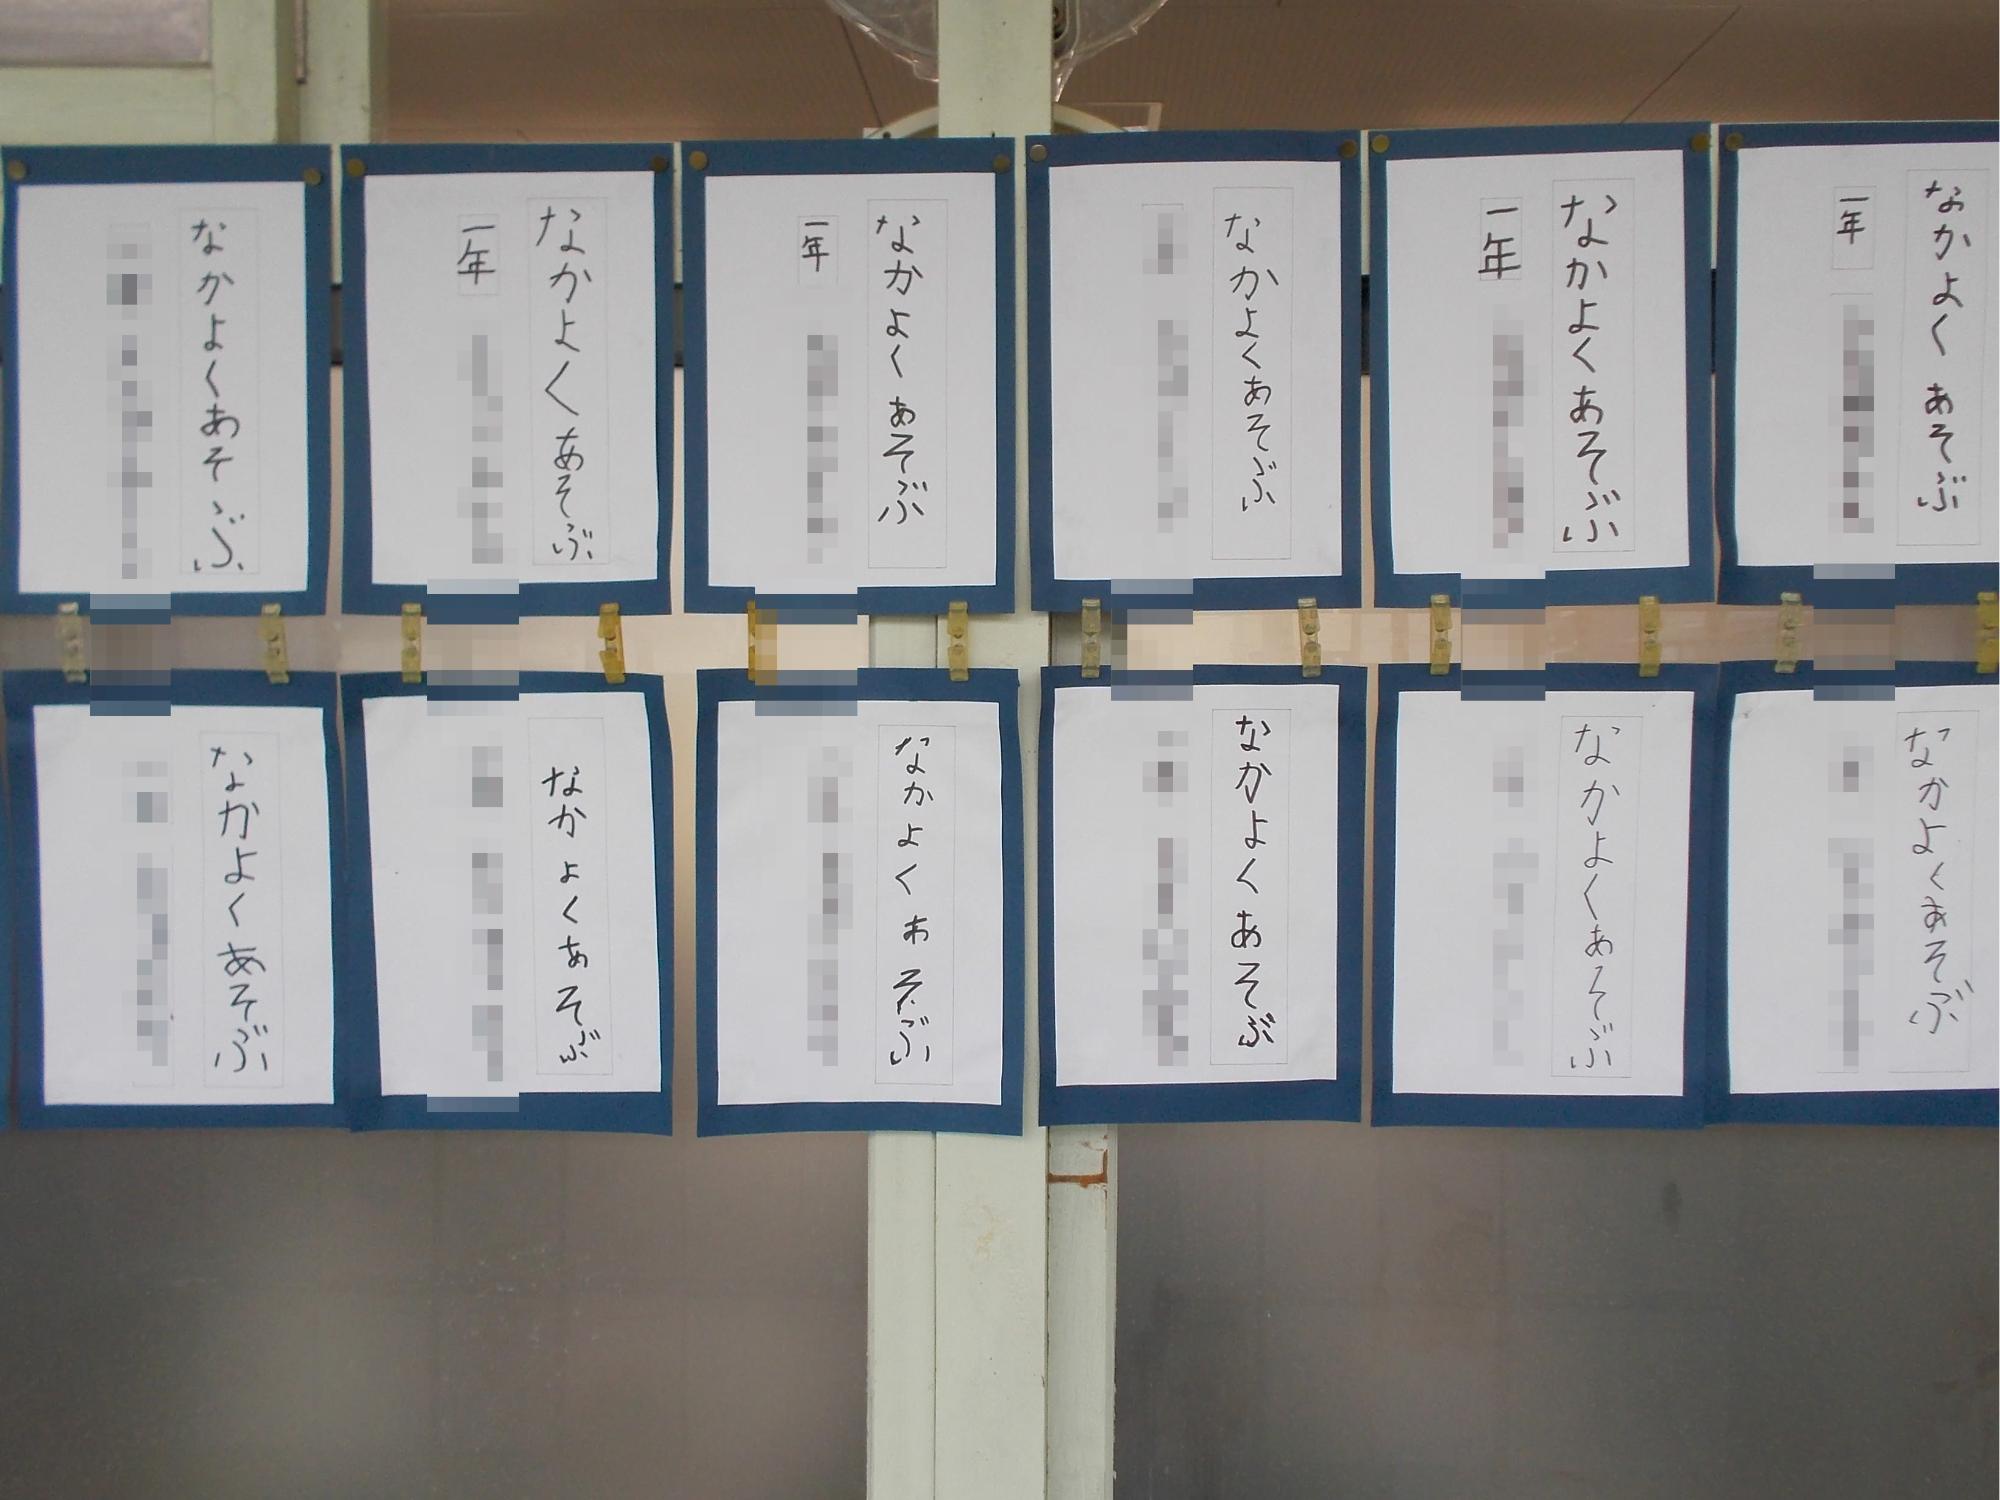 なかよくあそぶ
一年
なかよくあそぶ
一年
なかよくあそぶ
なかよくあそぶ
一年
なかよくあそぶ
一年
なかよくあそぶ
なかよくあそぶ
なかよくあそぶ
なかよくあそぶ
なかよくあそぶ
なかよくあそぶ
なかよくあそぶ
なかよくあそぶ